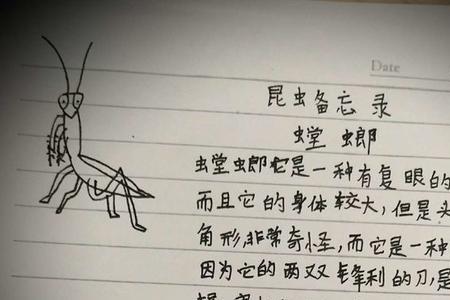 Date
昆虫备忘录
螳螂
螳螂它是一种有复眼的
而且它的身体较大,但是头
角形,非常奇怪,而它是一种
因为它的两双锋利的刀,是